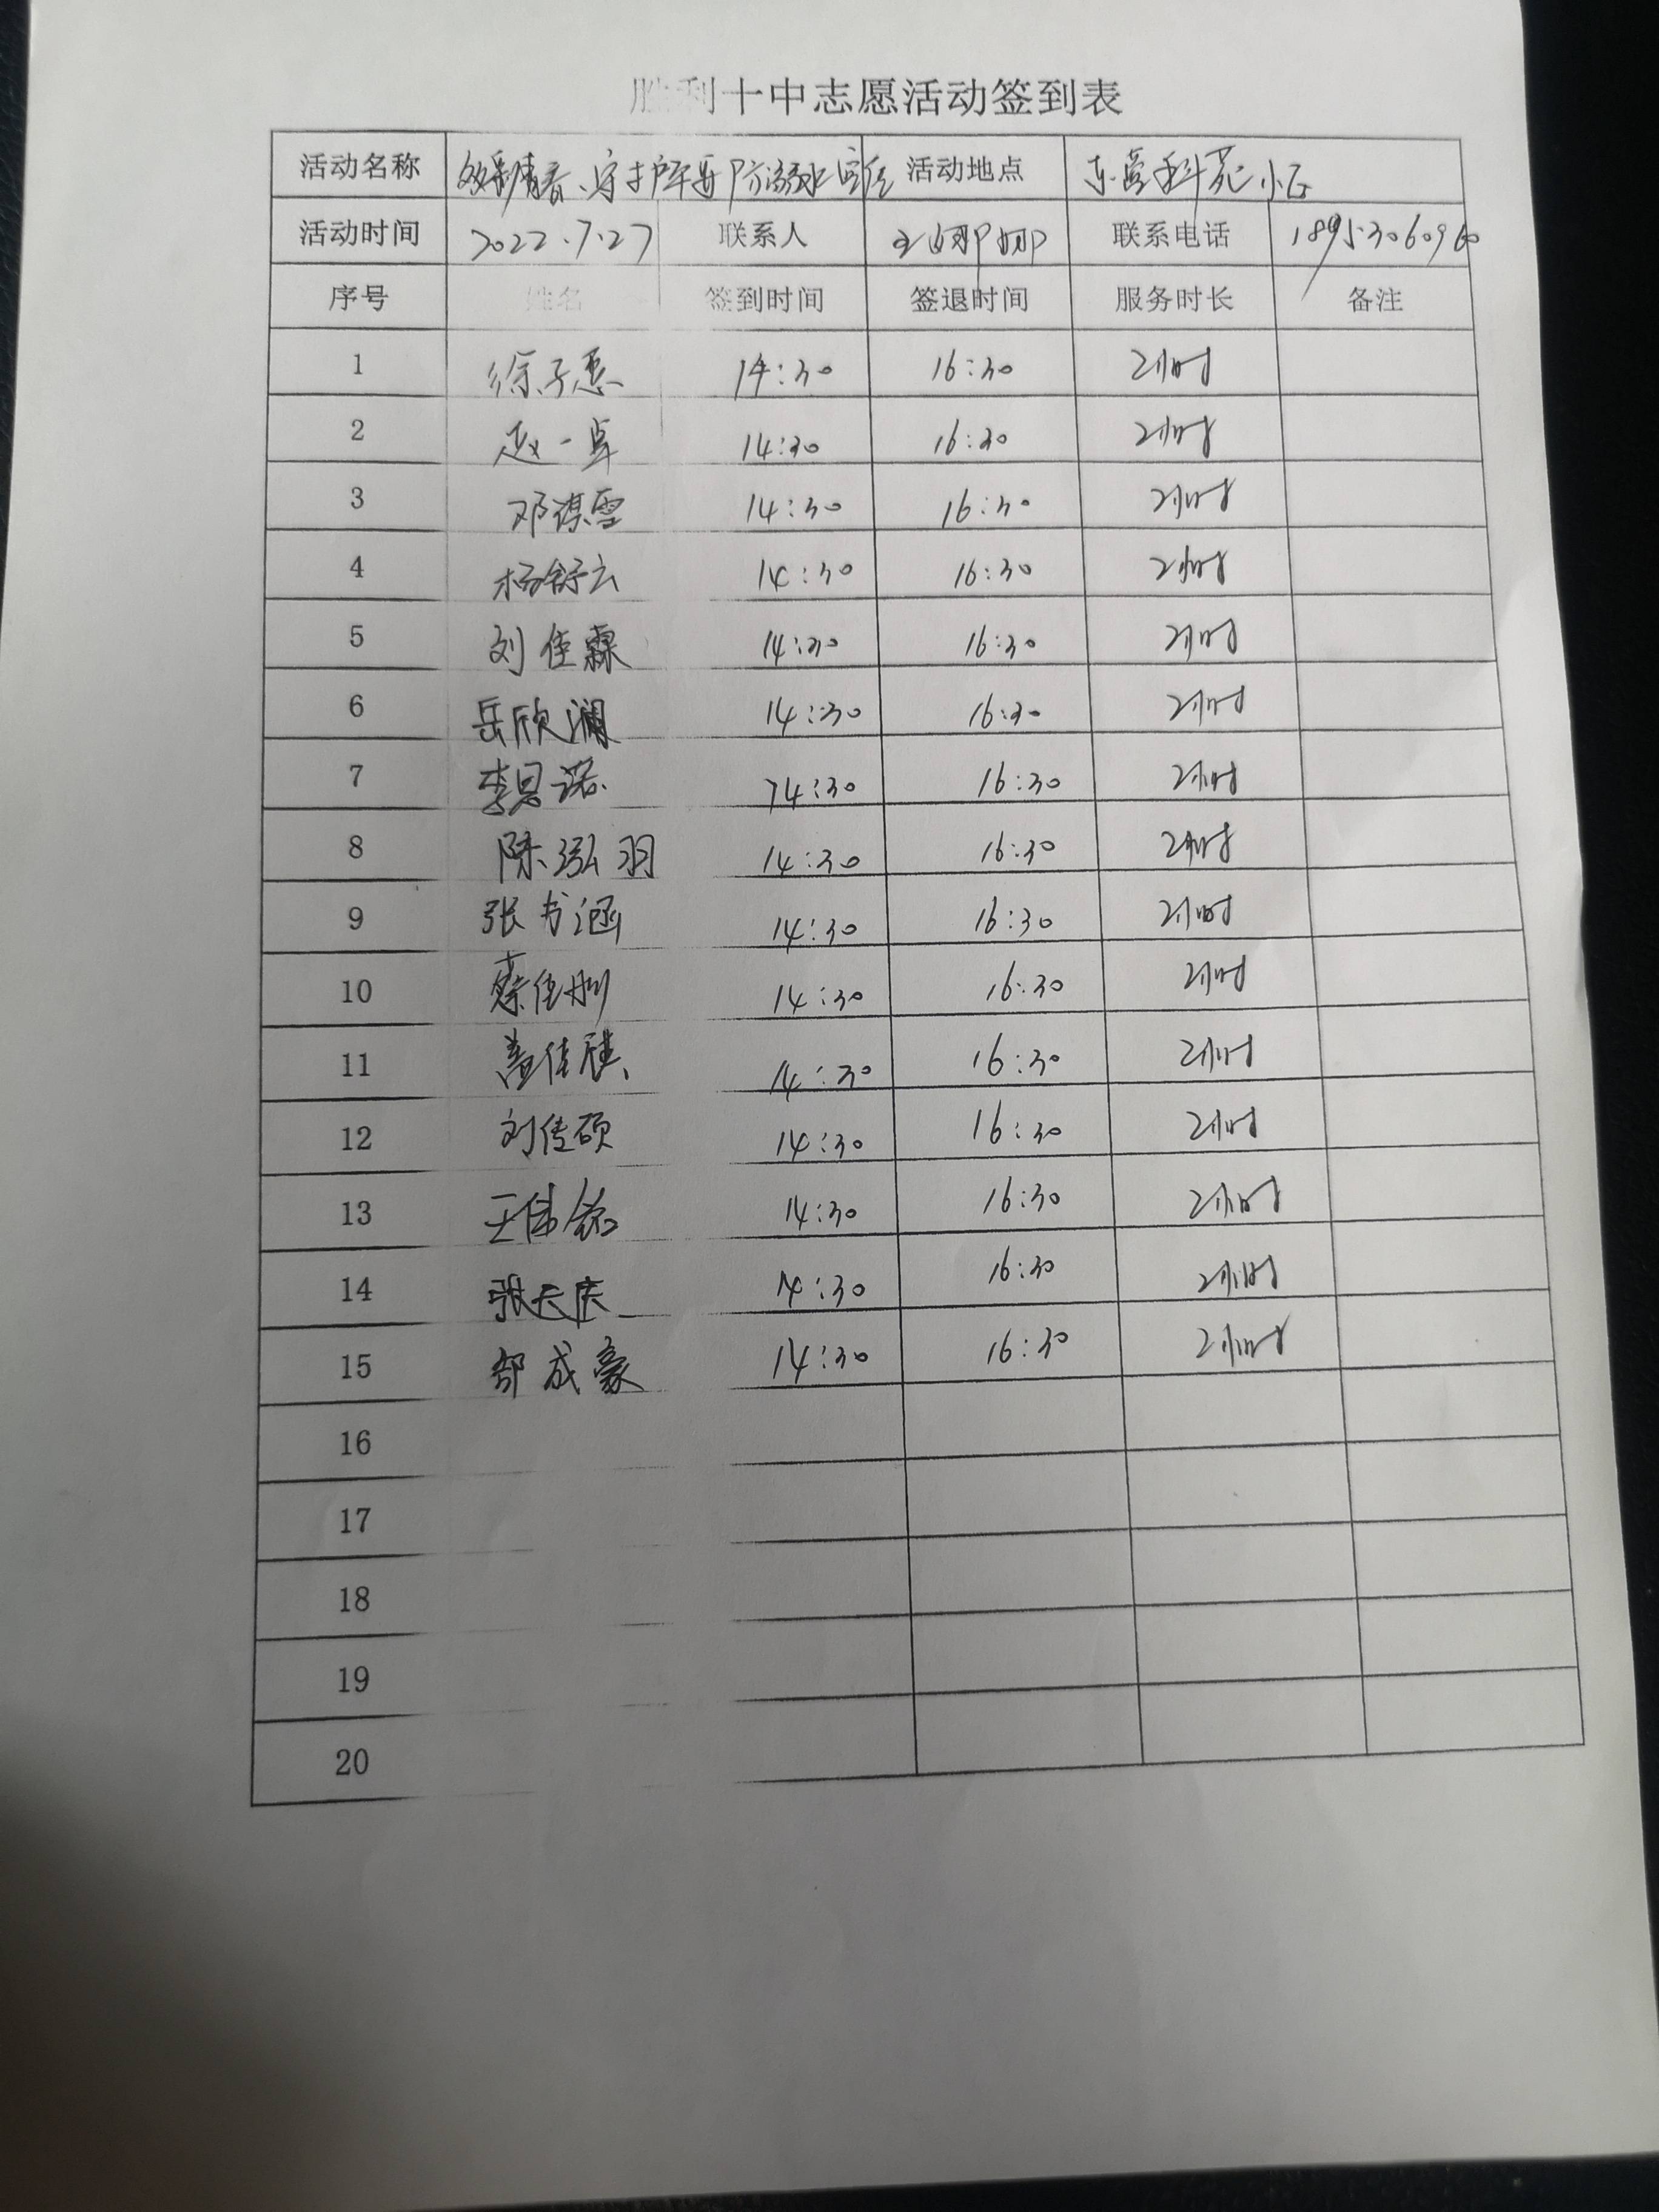 胜利十中志愿活动签到表
活动名称 青春、守护平安防溺水宣传 活动地点 东营科苑小区
活动时间 2022.7.27 联系人 王娜娜 联系电话 18953060960
序号 姓名 签到时间 签退时间 服务时长 备注
1 徐子惠 14:30 16:30 2小时
2 赵一卓 14:30 16:30 2小时
3 邓谋雪 14:30 16:30 2小时
4 杨舒云 14:30 16:30 2小时
5 刘佳霖 14:30 16:30 2小时
6 岳欣澜 14:30 16:30 2小时
7 李思诺 14:30 16:30 2小时
8 陈泓羽 14:30 16:30 2小时
9 张书涵 14:30 16:30 2小时
10 蔡佳彤 14:30 16:30 2小时
11 盖佳祺 14:30 16:30 2小时
12 刘佳硕 14:30 16:30 2小时
13 王伟铭 14:30 16:30 2小时
14 张天庆 14:30 16:30 2小时
15 郜成豪 14:30 16:30 2小时
16
17
18
19
20